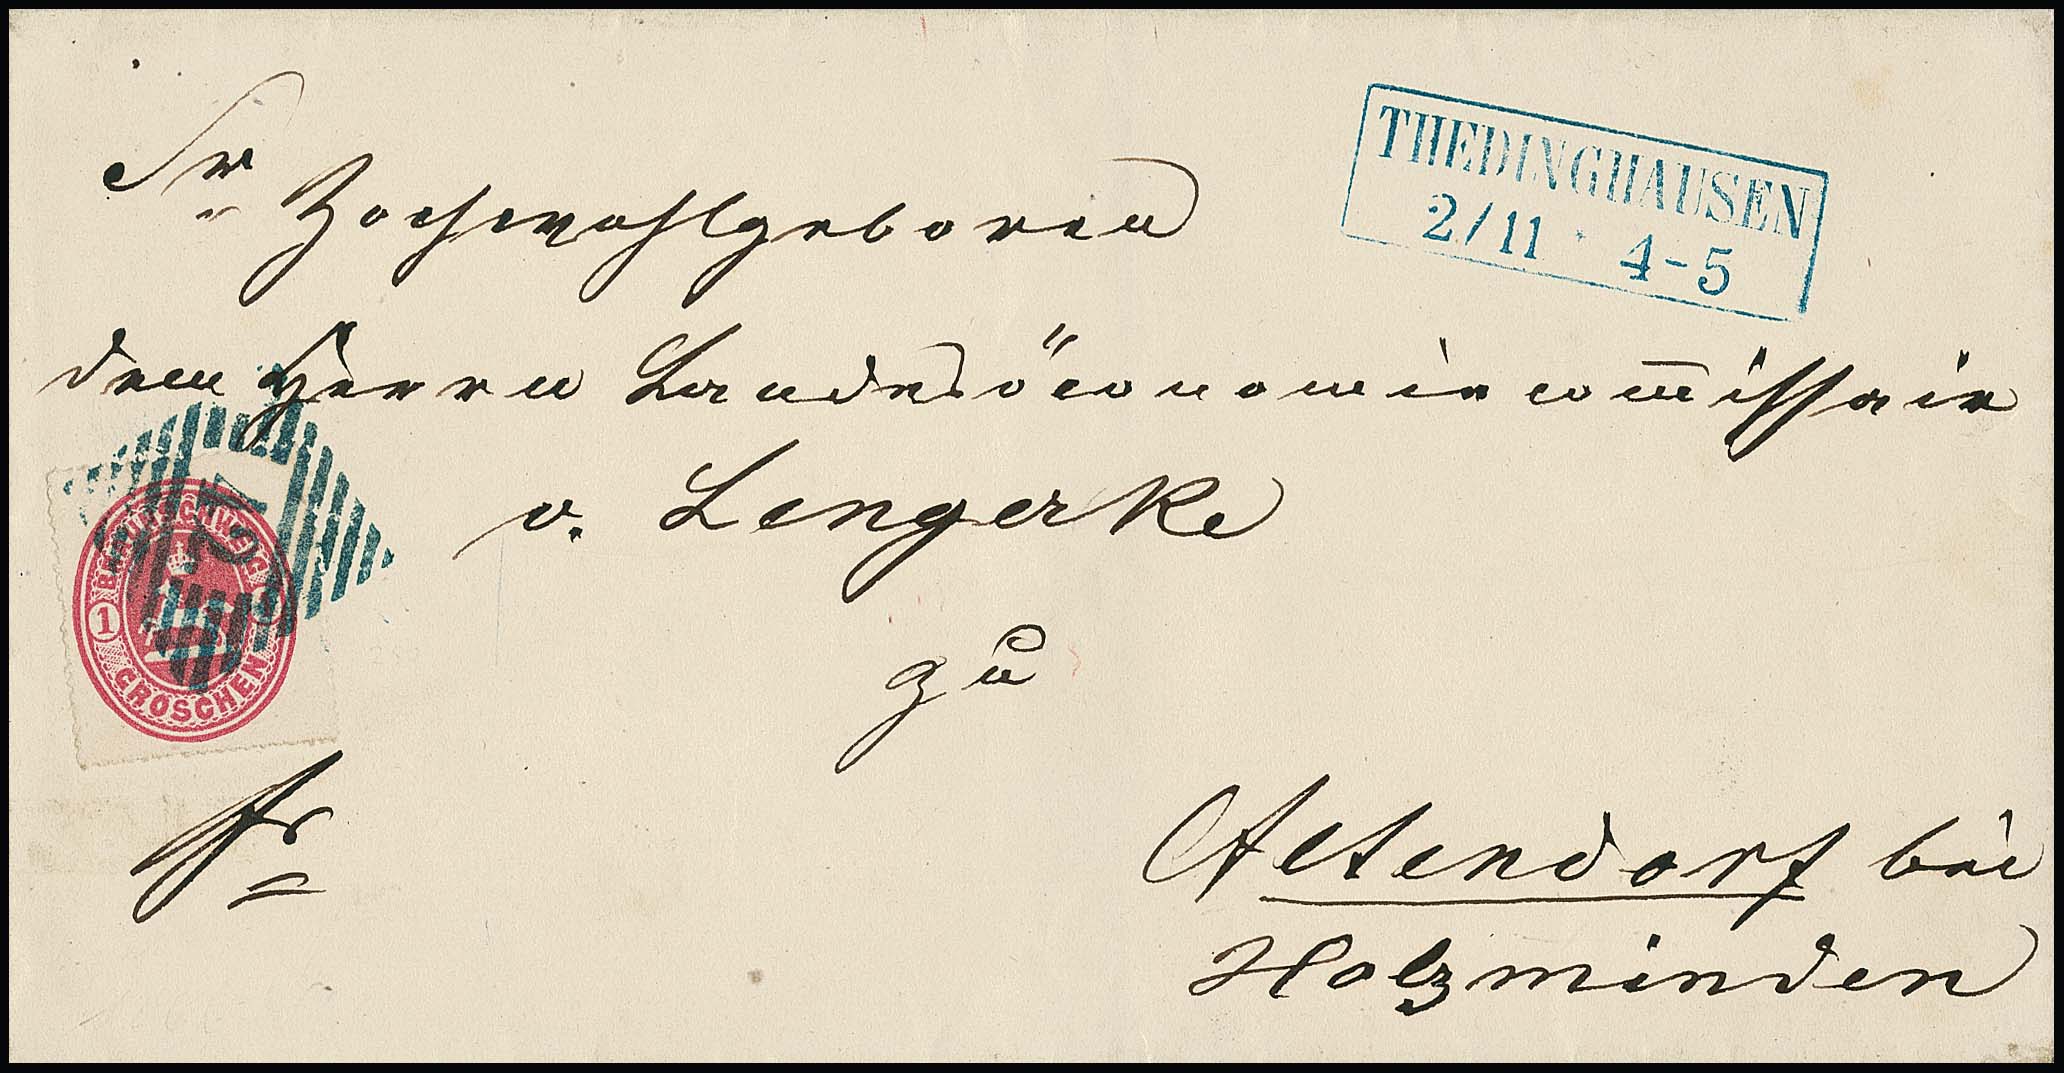 THEDINGHAUSEN
2/11 4-5
Sr Hochwohlgeboren
dem Herrn Landesöconomiecom̅issair
v. Lengerke
zu
Altendorf bei
Holzminden
fr
BRAUNSCHWEIG
1
GROSCHEN